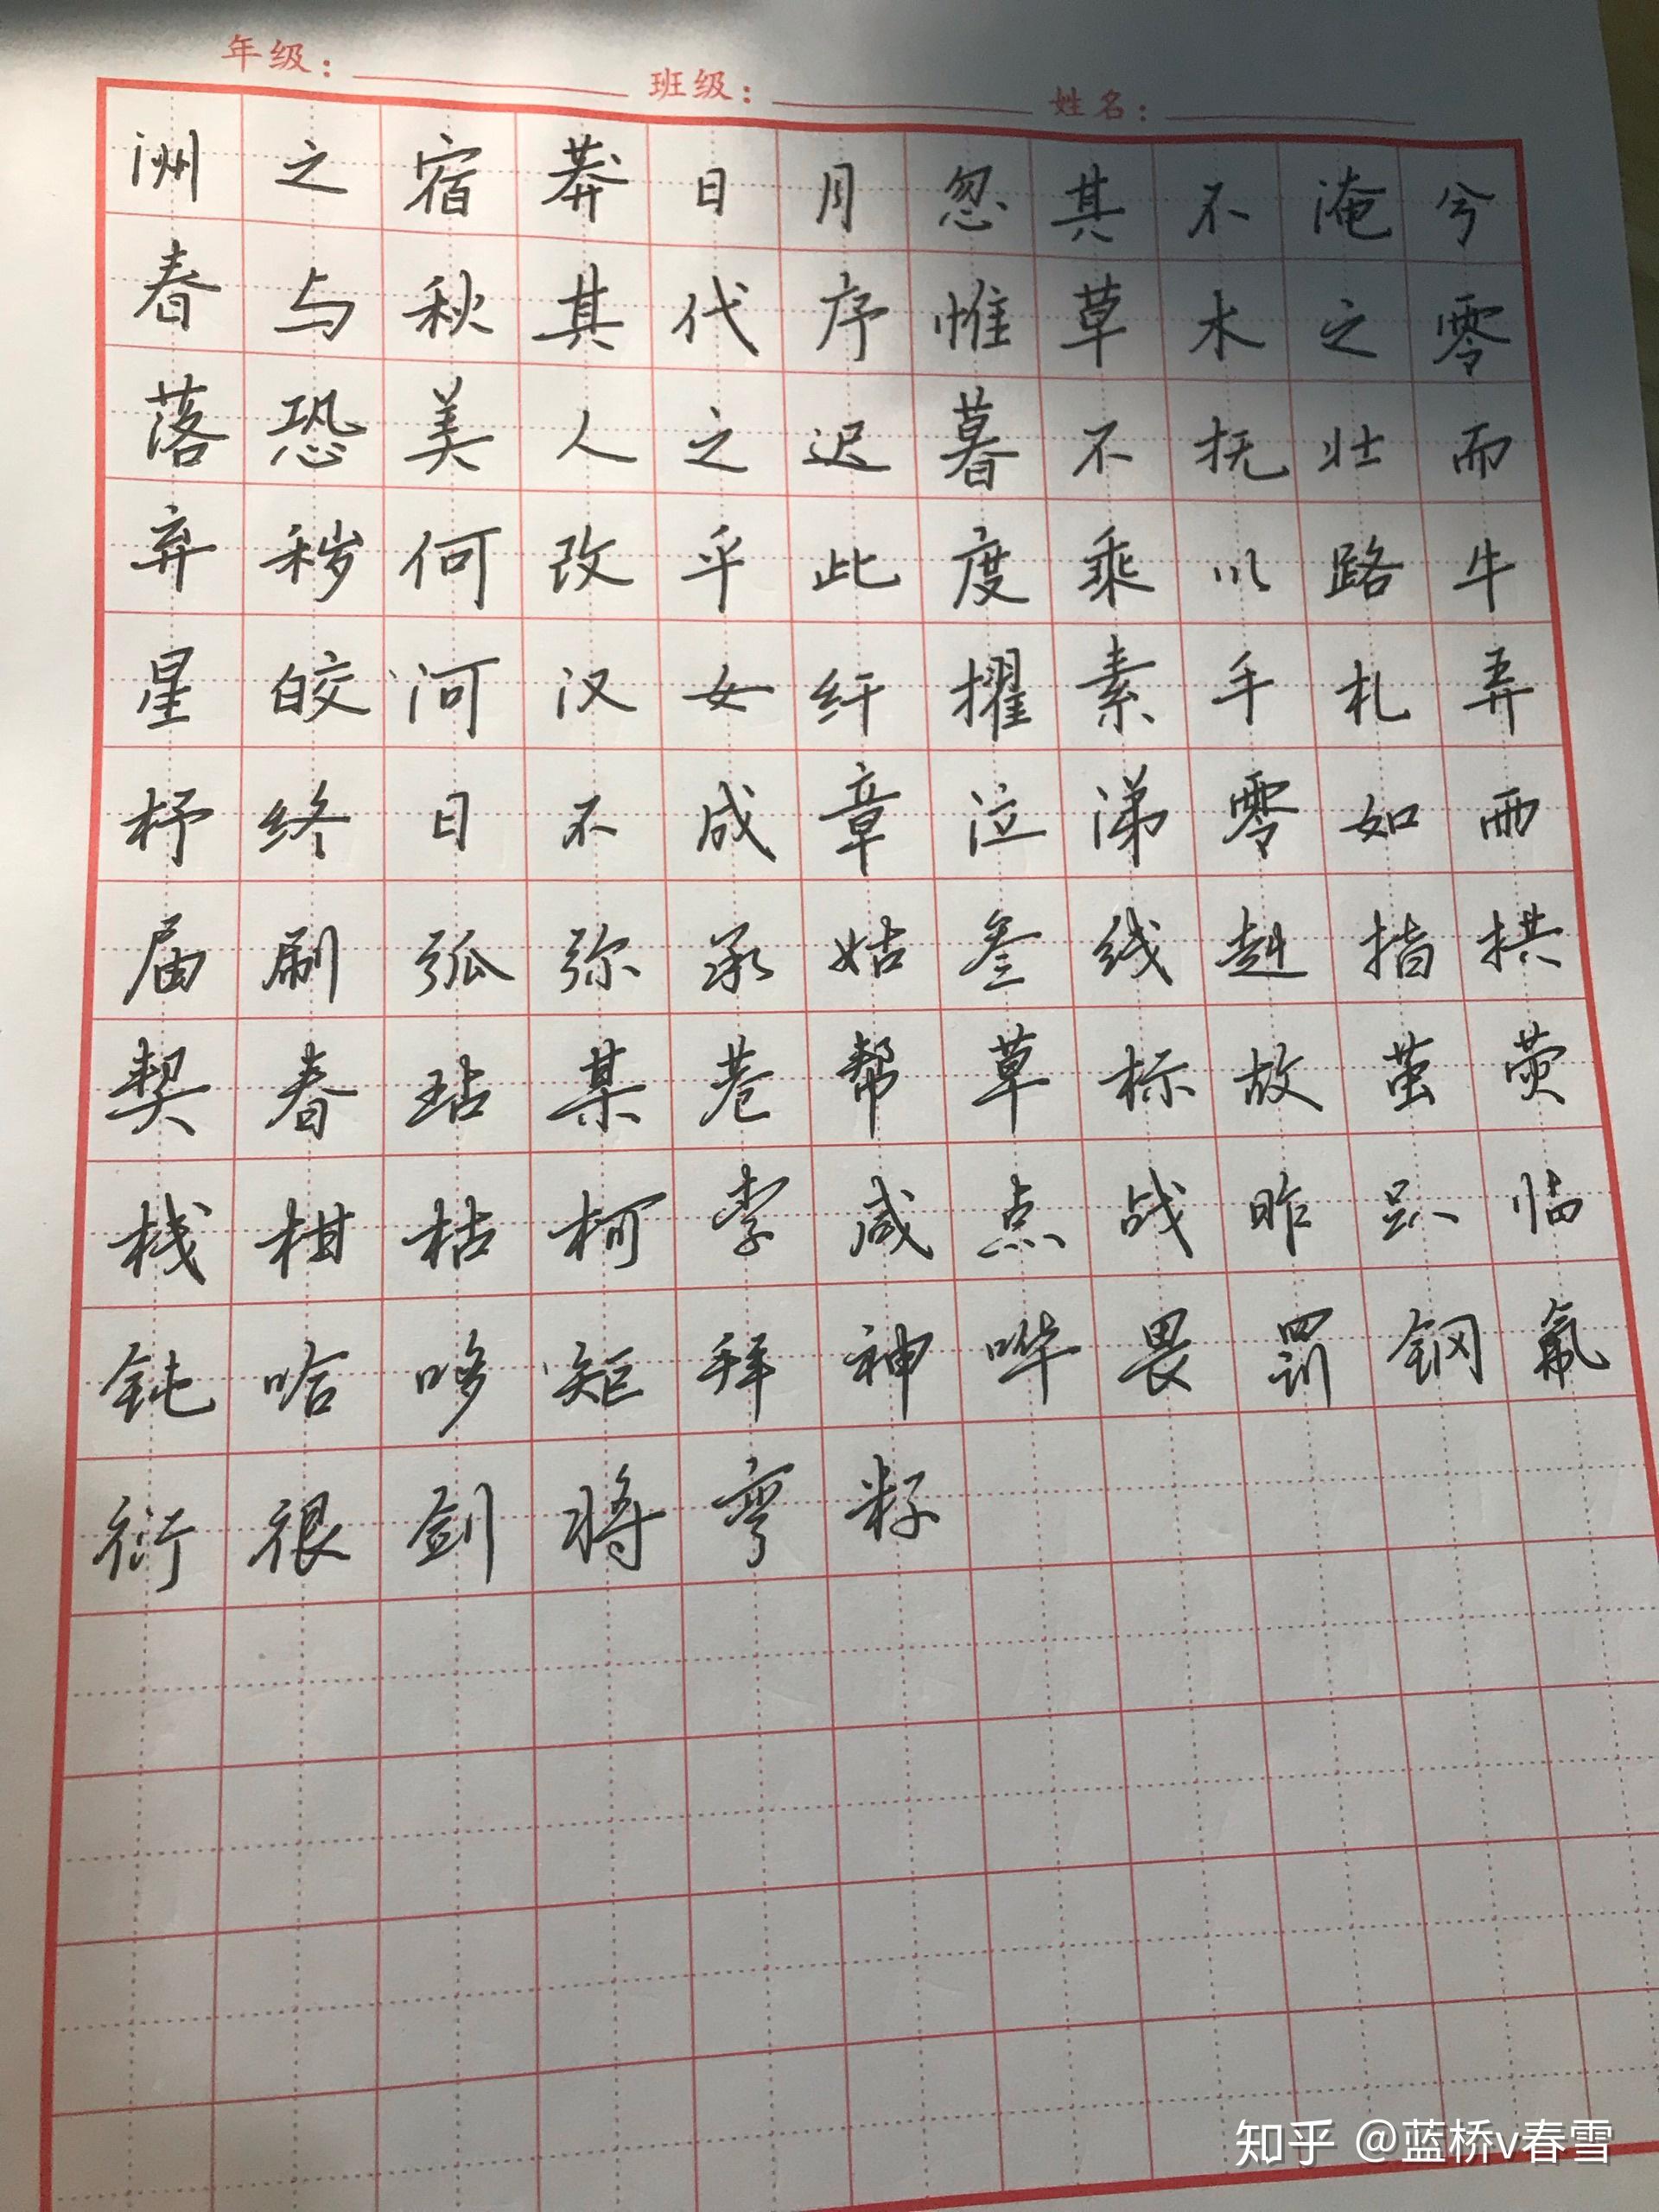 年级：班级：姓名：
洲之宿莽日月忽其不淹兮
春与秋其代序惟草木之零
落恐美人之迟暮不抚壮而
弃秽何改乎此度乘以路牛
星皎河汉女纤擢素手札弄
杼终日不成章泣涕零如雨
届刷弧弥承姑叁线赳指拱
契春玷某巷帮草标故茧荧
栈柑枯柯李咸点战昨趴临
钝哈哆矩拜神哗畏罚钢氟
衍很剑将弯籽
知乎 @蓝桥v春雪